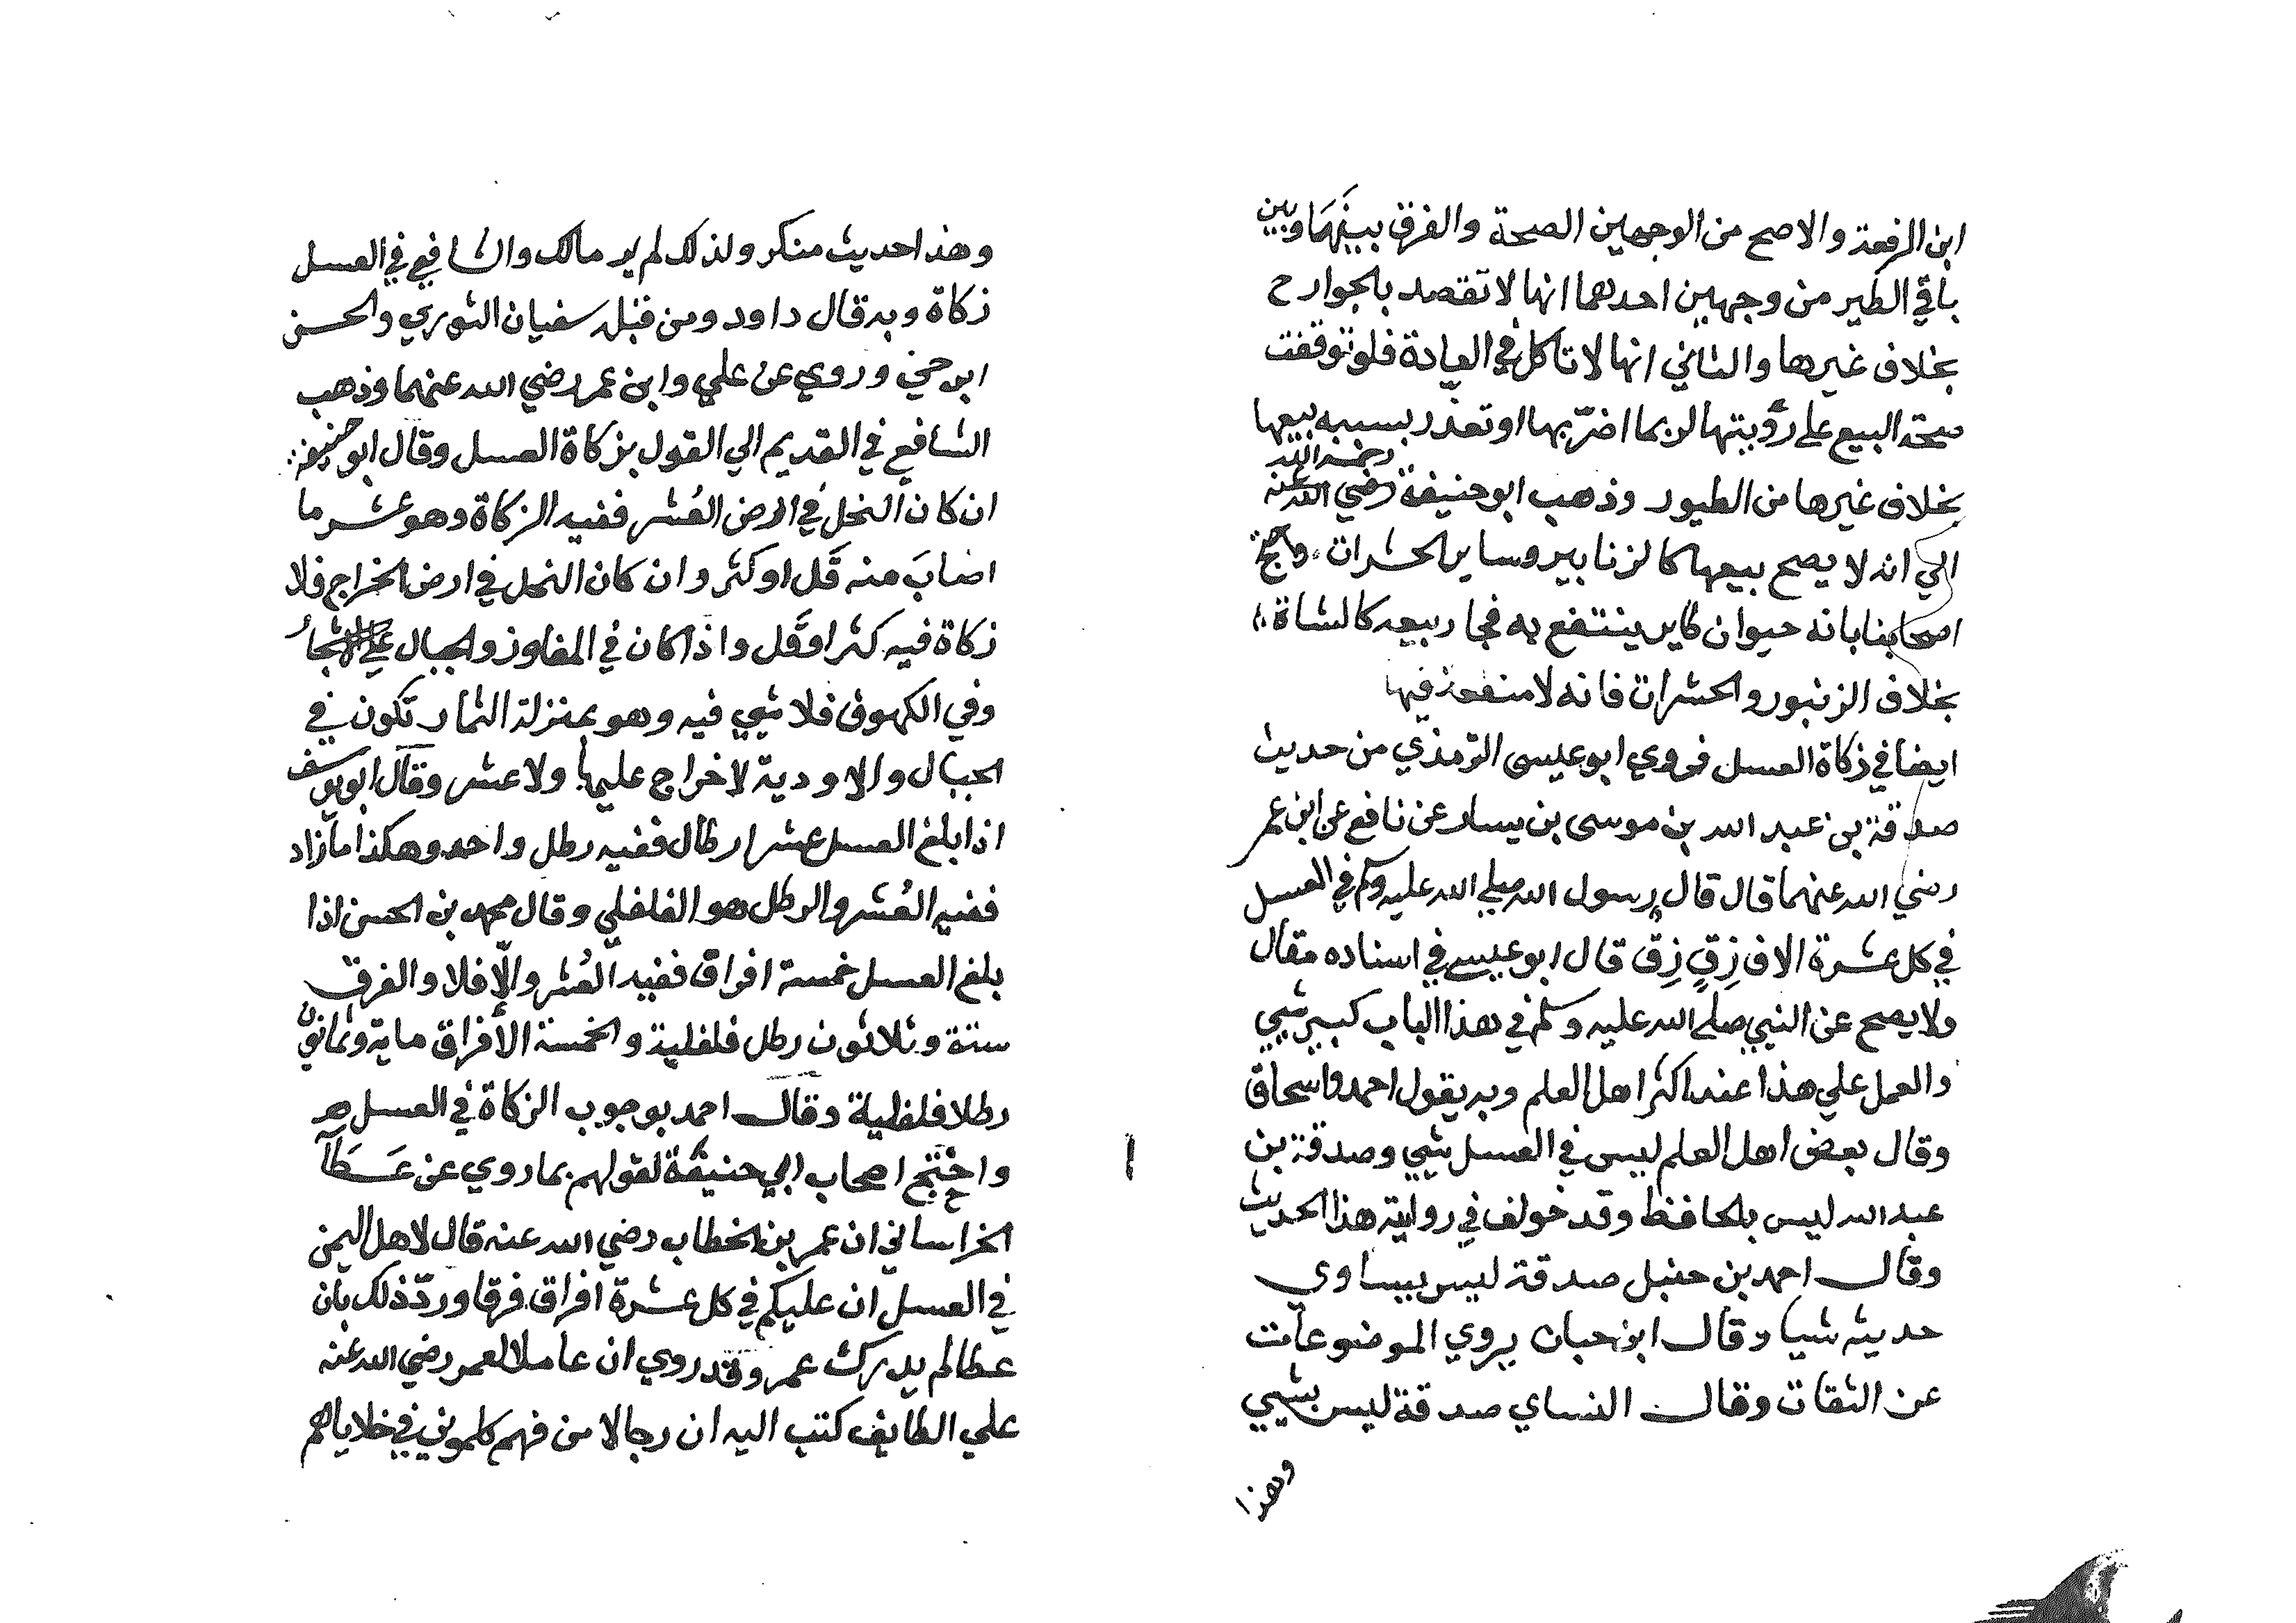 ابن الرفعة والاصح من الوجهين الصحة والفرق بينهَمَا وبين
باقي الطير من وجهين احدهما انها لا تقصد بالجوارح
بخلاف غيرها والثاني انها لا تاكل في العادة فلو توقفت
صحة البيع على رؤيتها لربما اضرّ بها او تعذر بسببه بيعها
بخلاف غيرها من الطيور وذهب ابو حنيفة رضي الله عنه
رحمه الله
الي انه لا يصح بيعها كالزنابير وساير الحشرات واحتج
اصحابنا بانه حيوان طاير ينتفع به فجاز بيعه كالشاة
بخلاف الزنبور والحشرات فانه لا منفعة فيها
ايضا في زكاة العسل فروي ابو عيسى الترمذي من حديث
صدقة بن عبد الله بن موسى بن يسار عن نافع عن ابن عمر
رضي الله عنهما قال قال رسول الله صلي الله عليه وسلم في العسل
في كل عشرة الاف زِقٍ زِق قال ابو عيسى في اسناده مقال
ولا يصح عن النبي صلى الله عليه وسلم في هذا الباب كبير شيي
والعمل علي هذا عند اكثر اهل العلم وبه يقول احمد واسحاق
وقال بعض اهل العلم ليس في العسل شيي وصدقة بن
عبد الله ليس بالحافظ وقد خولف في رواية هذا الحديث
وقال احمد بن حنبل صدقة ليس بيساوي
حديثه شيا وقال ابن حبان يروي الموضوعات
عن الثقات وقال النساي صدقة ليس بشيي
وهذا
وهذا حديث منكر ولذلك لم ير مالك والشافعي في العسل
زكاة وبه قال داود ومن قبله سفيان الثوري والحسن
ابن حي وروي عن علي وابن عمر رضي الله عنهما وذهب
الشافعي في القديم الي القول بزكاة العسل وقال ابو حنيفة
ان كان النحل في ارض العُشر ففيه الزكاة وهو عشر ما
اصابَ منه قَل او كثر وان كان النحل في ارض الخراج فلا
زكاة فيه كثر او قَل واذا كان في المفاوز والجبال علي الاشجار
وفي الكهوف فلا شيي فيه وهو بمنزلة الثمار تكون في
الجبال والاودية لا خراج عليها ولا عشر وقال ابو يوسف
اذا بلغ العسل عشر ارطال ففيه رطل واحد وهكذا ما زاد
ففيه العُشر والرطل هو الفلفلي وقال محمد بن الحسن اذا
بلغ العسل خمسة افراق ففيه العُشر والّا فلا والفرق
ستة وثلاثون رطل فلفلية والخمسة الأفراق ماية وثمانون
رطلا فلفلية وقال احمد بوجوب الزكاة في العسل
واحتج اصحاب ابي حنيفة لقولهم بما روي عن عَطَآ
الخراساني ان عمر بن الخطاب رضي الله عنه قال لاهل اليمن
في العسل ان عليكم في كل عشرة افراق فرقا وردّ ذلك بان
عطا لم يدرك عمر وقد روي ان عاملا لعمر رضي الله عنه
علي الطايف كتب اليه ان رجالا من فهم كلموني في خلاياهم